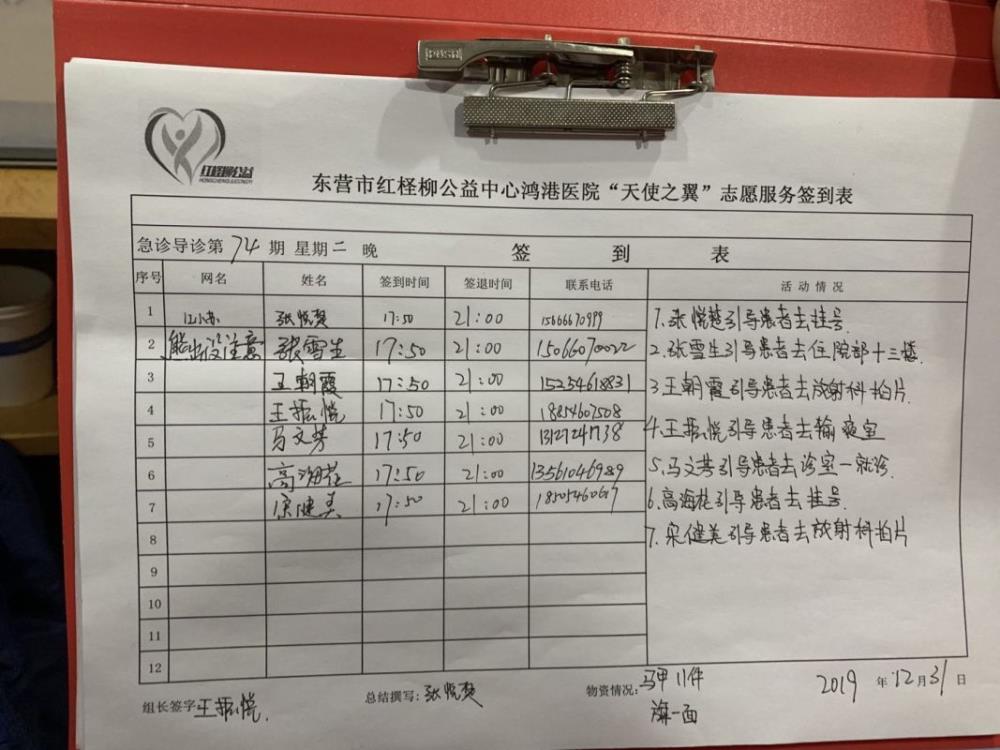 PUSH
红柽柳公益
东营市红柽柳公益中心鸿港医院“天使之翼”志愿服务签到表
急诊导诊第 74 期 星期二 晚 签 到 表
序号 网名 姓名 签到时间 签退时间 联系电话 活动情况
1 江小苏 张悦楚 17:50 21:00 1.张悦楚引导患者去挂号
2 熊出没注意 张雪生 17:50 21:00 15066070022 2.张雪生引导患者去住院部十三楼.
3 王朝霞 17:50 21:00 15254618831 3王朝霞引导患者去放射科拍片.
4 王振悦 17:50 21:00 18854607508 4.王振悦引导患者去输液室
5 马文芳 17:50 21:00 5.马文芳引导患者去诊室一就诊
6 高海花 17:50 21:00 13561046989 6.高海花引导患者去挂号.
7 宋健美 17:50 21:00 7.宋健美引导患者去放射科拍片
8
9
10
11
12
组长签字王振悦. 总结撰写:张悦楚 物资情况:马甲11件 2019 年 12月31日
旗一面